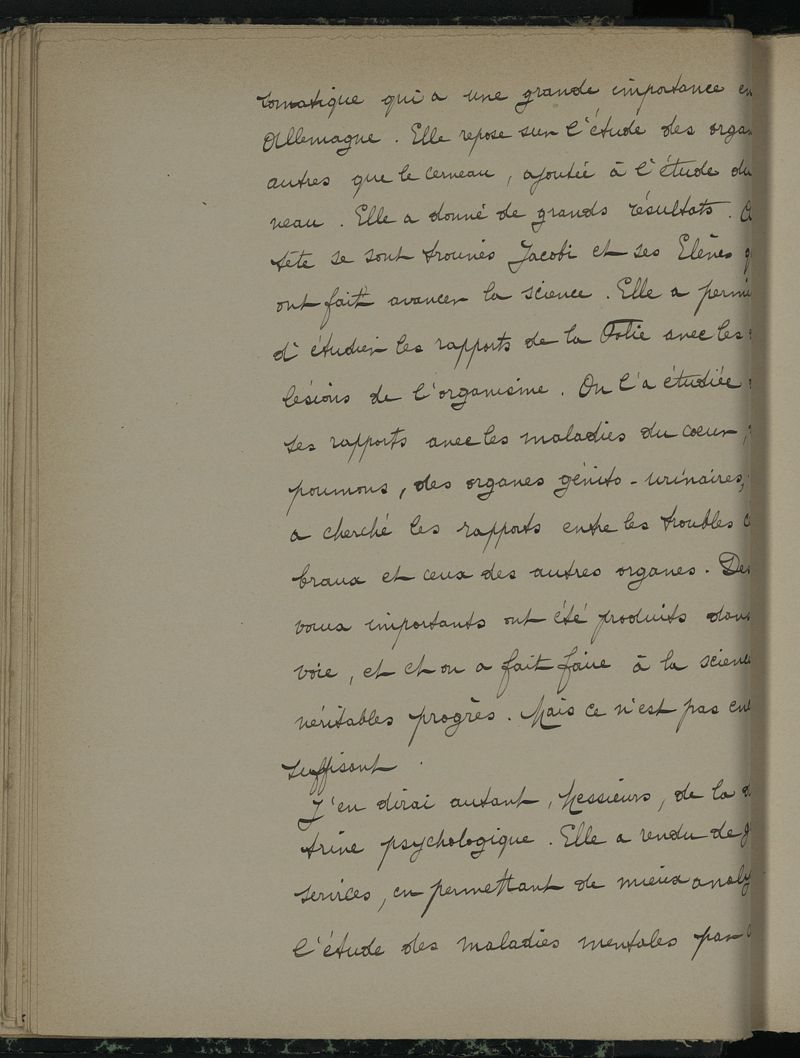 somatique qui a une grande importance en
Allemagne. Elle repose sur l'étude des organ
autres que le cerveau, ajoutée à l'étude du
veau. Elle a donné de grands résultats. A
tête se sont trouvés Jacobi et ses Elèves q
ont fait avancer la science. Elle a permi
d'étudier les rapports de la Folie avec les
lésions de l'organisme. On l'a étudiée
ses rapports avec les maladies du coeur,
poumons, des organes génito-urinaires,
a cherché les rapports entre les troubles c
braux et ceux des autres organes. Des
vaux importants ont été produits dans
voie, et et on a fait faire à la science
véritables progrès. Mais ce n'est pas enc
suffisant.
J'en dirai autant, Messieurs, de la d
trine psychologique. Elle a rendu de g
services, en permettant de mieux analy
l'étude des maladies mentales par